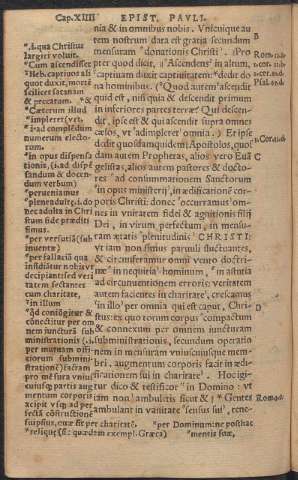 Cap. XIIII EPIST. PAVLI.
nia & in omnibus nobis. Vnicuique au
tem nostrum data est gratia secundum
mensuram donationis Christi. Pro
pter quod dicit, Ascendens in altum,
captiuam duxit captiuitatem: dedit do
na hominibus. Quod autem ascendit
quid est, nisi quia & descendit primum
in inferiores partes terræ? Qui descen
dit, ipse est qui ascendit supra omnes
cælos, vt adimpleret omnia. Et ipse
dedit quosdam quidem Apostolos, quos
dam autem Prophetas, alios vero Euā
gelistas, alios autem pastores & docto
res ad consummationem Sanctorum
in opus ministerij, in ædificationē cor
poris Christi: donec occurramus om
nes in vnitatem fidei & agnitionis filij
Dei, in virum perfectum, in mensu
ram ætatis plenitudinis CHRISTI:
vt iam non simus paruuli fluctuantes,
& circumferamur omni vento doctri
næ in nequitia hominum, in astutia
ad circumuentionem erroris: veritatem
autem facientes in charitate, crescamus
in illo per omnia qui est caput, Chri
stus: ex quo totum corpus compactum
& connexum per omnem iuncturam
subministrationis, secundum operatio
nem in mensuram vniuscuiusque mem
bri, augmentum corporis facit in ædi
ficationem sui in charitate. Hoc igi
tur dico & testificor in Domino: vt
iam non ambuletis sicut & Gentes
ambulant in vanitate sensus sui, tene-
i. qua Christus
largiri voluit.
Cum ascendisset
Heb. captiuos ali
quot duxit, mortē
scilicet satanam
& peccatum.
Cæterum illud
impleret (vel,
i. ad complēdum
numerum electo-
rum.
in opus dispensa
tionis, (i. ad dispē
sandum & docen-
dum verbum)
perueniamus
Christi
stum fide præditi
simus.
per versutiā (sub
inuenta)
per fallaciā qua
insidiātur
decipiant: sed veri
tatem sectantes
cum charitate,
in illum
cōnectitur per om
nem iuncturā sub
ministrationis (.i.
per mutuam offi
ciorum subministra
tionē)
pro mēsura vniuscu
iusq; partis aug
mentum corporis
accipit vsq; ad per
fectā cōstructionē
suipsius, cuæ fit per charitatē.
reliquæ (s. quædam exempl. Græca)
per Dominum
mentis suæ,
B
C
D